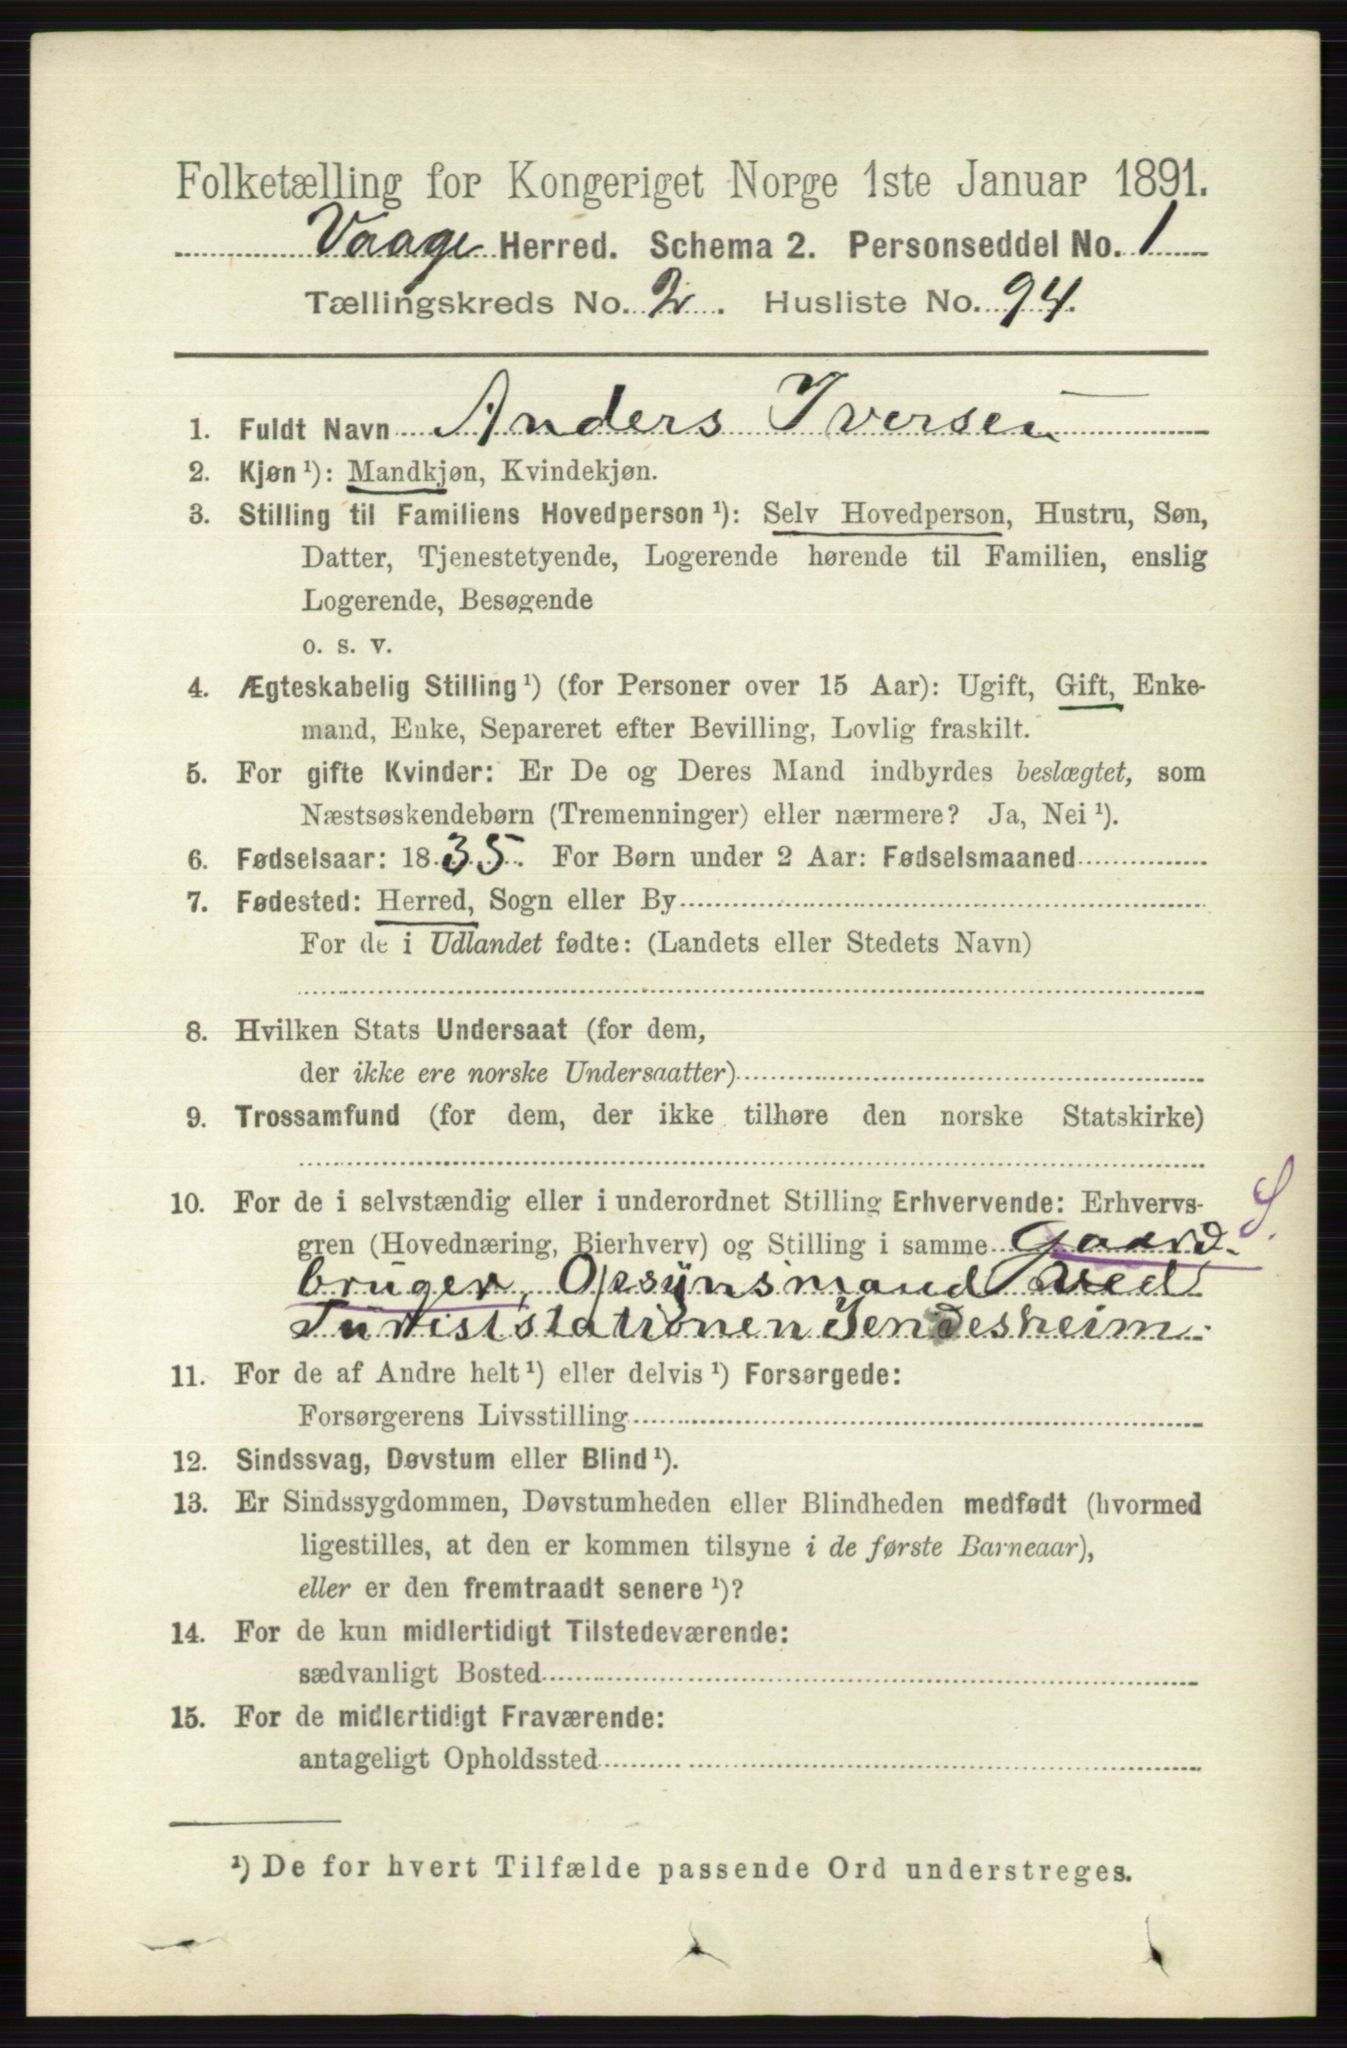 Folketælling for Kongeriget Norge 1ste Januar 1891.
Vaage Herred. Schema 2. Personseddel No. 1
Tællingskreds No. 2. Husliste No. 94.
1. Fuldt Navn Anders Iversen
2. Kjøn ¹): Mandkjøn, Kvindekjøn.
3. Stilling til Familiens Hovedperson ¹): Selv Hovedperson, Hustru, Søn,
Datter, Tjenestetyende, Logerende hørende til Familien, enslig
Logerende, Besøgende
o. s. v.
4. Ægteskabelig Stilling ¹) (for Personer over 15 Aar): Ugift, Gift, Enke-
mand, Enke, Separeret efter Bevilling, Lovlig fraskilt.
5. For gifte Kvinder: Er De og Deres Mand indbyrdes beslægtet, som
Næstsøskendebørn (Tremenninger) eller nærmere? Ja, Nei ¹).
6. Fødselsaar: 1835. For Børn under 2 Aar: Fødselsmaaned
7. Fødested: Herred, Sogn eller By
For de i Udlandet fødte: (Landets eller Stedets Navn)
8. Hvilken Stats Undersaat (for dem,
der ikke ere norske Undersaatter)
9. Trossamfund (for dem, der ikke tilhøre den norske Statskirke)
10. For de i selvstændig eller i underordnet Stilling Erhvervende: Erhvervs-
gren (Hovednæring, Bierhverv) og Stilling i samme Gaard- S.
bruger, Opsynsmand ved
Turiststationen Jendesheim.
11. For de af Andre helt ¹) eller delvis ¹) Forsørgede:
Forsørgerens Livsstilling
12. Sindssvag, Døvstum eller Blind ¹).
13. Er Sindssygdommen, Døvstumheden eller Blindheden medfødt (hvormed
ligestilles, at den er kommen tilsyne i de første Barneaar),
eller er den fremtraadt senere ¹)?
14. For de kun midlertidigt Tilstedeværende:
sædvanligt Bosted
15. For de midlertidigt Fraværende:
antageligt Opholdssted
¹) De for hvert Tilfælde passende Ord understreges.